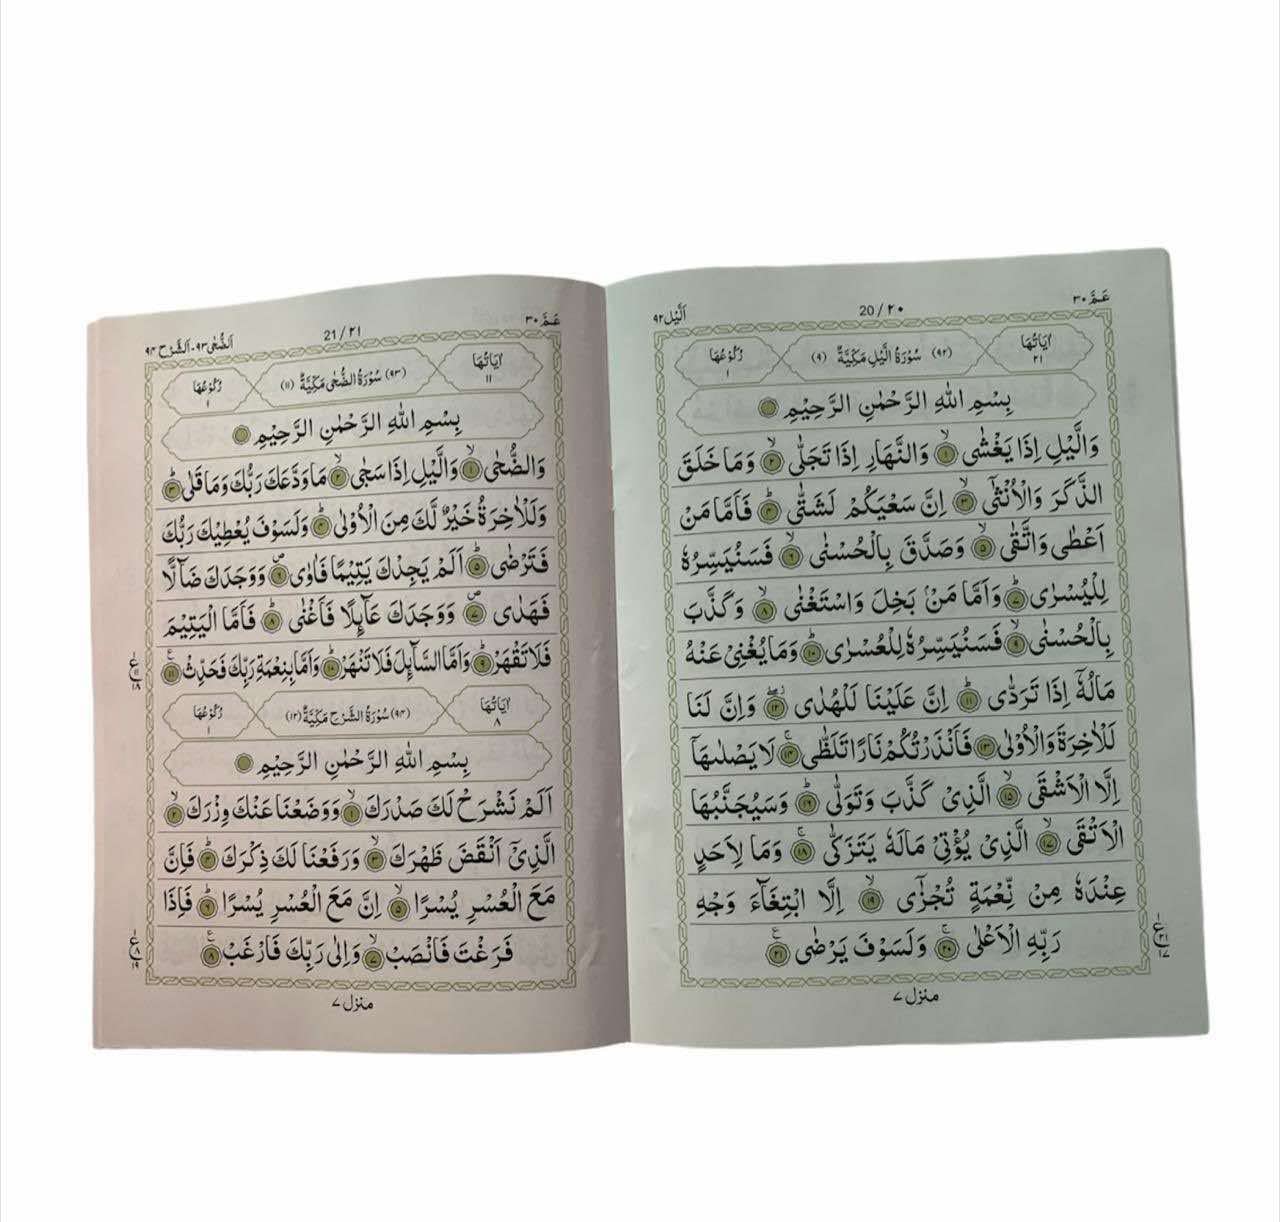 عَمَّ ٣٠
20 / ٢٠
اَلَّيْل ٩٢
اٰيَاتُهَا ٢١
(٩٢) سُوْرَةُ الَّيْلِ مَكِّيَّةٌ (٩)
رُكُوْعُهَا ١
بِسْمِ اللّٰهِ الرَّحْمٰنِ الرَّحِيْمِ
وَالَّيْلِ اِذَا يَغْشٰى ۙ﴿١﴾ وَالنَّهَارِ اِذَا تَجَلّٰى ۙ﴿٢﴾ وَمَا خَلَقَ
الذَّكَرَ وَالْاُنْثٰٓى ۙ﴿٣﴾ اِنَّ سَعْيَكُمْ لَشَتّٰى ؕ﴿٤﴾ فَاَمَّا مَنْ
اَعْطٰى وَاتَّقٰى ۙ﴿٥﴾ وَصَدَّقَ بِالْحُسْنٰى ۙ﴿٦﴾ فَسَنُيَسِّرُهٗ
لِلْيُسْرٰى ؕ﴿٧﴾ وَاَمَّا مَنْۢ بَخِلَ وَاسْتَغْنٰى ۙ﴿٨﴾ وَكَذَّبَ
بِالْحُسْنٰى ۙ﴿٩﴾ فَسَنُيَسِّرُهٗ لِلْعُسْرٰى ؕ﴿١٠﴾ وَمَا يُغْنِىْ عَنْهُ
مَالُهٗٓ اِذَا تَرَدّٰى ؕ﴿١١﴾ اِنَّ عَلَيْنَا لَلْهُدٰى ۖ﴿١٢﴾ وَاِنَّ لَنَا
لَلْاٰخِرَةَ وَالْاُوْلٰى ﴿١٣﴾ فَاَنْذَرْتُكُمْ نَارًا تَلَظّٰى ۚ﴿١٤﴾ لَا يَصْلٰىهَآ
اِلَّا الْاَشْقَى ۙ﴿١٥﴾ الَّذِىْ كَذَّبَ وَتَوَلّٰى ؕ﴿١٦﴾ وَسَيُجَنَّبُهَا
الْاَتْقَى ۙ﴿١٧﴾ الَّذِىْ يُؤْتِىْ مَالَهٗ يَتَزَكّٰى ۚ﴿١٨﴾ وَمَا لِاَحَدٍ
عِنْدَهٗ مِنْ نِّعْمَةٍ تُجْزٰٓى ۙ﴿١٩﴾ اِلَّا ابْتِغَآءَ وَجْهِ
رَبِّهِ الْاَعْلٰى ۚ﴿٢٠﴾ وَلَسَوْفَ يَرْضٰى ﴿٢١﴾
ع ٢١ ١٧
منزل ٧
عَمَّ ٣٠
21 / ٢١
اَلضُّحٰى ٩٣ - اَلشَّرْح ٩٤
اٰيَاتُهَا ١١
(٩٣) سُوْرَةُ الضُّحٰى مَكِّيَّةٌ (١١)
رُكُوْعُهَا ١
بِسْمِ اللّٰهِ الرَّحْمٰنِ الرَّحِيْمِ
وَالضُّحٰى ۙ﴿١﴾ وَالَّيْلِ اِذَا سَجٰى ۙ﴿٢﴾ مَا وَدَّعَكَ رَبُّكَ وَمَا قَلٰى ؕ﴿٣﴾
وَلَلْاٰخِرَةُ خَيْرٌ لَّكَ مِنَ الْاُوْلٰى ؕ﴿٤﴾ وَلَسَوْفَ يُعْطِيْكَ رَبُّكَ
فَتَرْضٰى ؕ﴿٥﴾ اَلَمْ يَجِدْكَ يَتِيْمًا فَاٰوٰى ۪﴿٦﴾ وَوَجَدَكَ ضَآلًّا
فَهَدٰى ۪﴿٧﴾ وَوَجَدَكَ عَآىِٕلًا فَاَغْنٰى ؕ﴿٨﴾ فَاَمَّا الْيَتِيْمَ
فَلَا تَقْهَرْ ؕ﴿٩﴾ وَاَمَّا السَّآىِٕلَ فَلَا تَنْهَرْ ؕ﴿١٠﴾ وَاَمَّا بِنِعْمَةِ رَبِّكَ فَحَدِّثْ ﴿١١﴾
ع ١١ ١٨
اٰيَاتُهَا ٨
(٩٤) سُوْرَةُ الشَّرْحِ مَكِّيَّةٌ (١٢)
رُكُوْعُهَا ١
بِسْمِ اللّٰهِ الرَّحْمٰنِ الرَّحِيْمِ
اَلَمْ نَشْرَحْ لَكَ صَدْرَكَ ۙ﴿١﴾ وَوَضَعْنَا عَنْكَ وِزْرَكَ ۙ﴿٢﴾
الَّذِىْٓ اَنْقَضَ ظَهْرَكَ ۙ﴿٣﴾ وَرَفَعْنَا لَكَ ذِكْرَكَ ؕ﴿٤﴾ فَاِنَّ
مَعَ الْعُسْرِ يُسْرًا ۙ﴿٥﴾ اِنَّ مَعَ الْعُسْرِ يُسْرًا ؕ﴿٦﴾ فَاِذَا
فَرَغْتَ فَانْصَبْ ۙ﴿٧﴾ وَاِلٰى رَبِّكَ فَارْغَبْ ﴿٨﴾
ع ٨ ١٩
منزل ٧